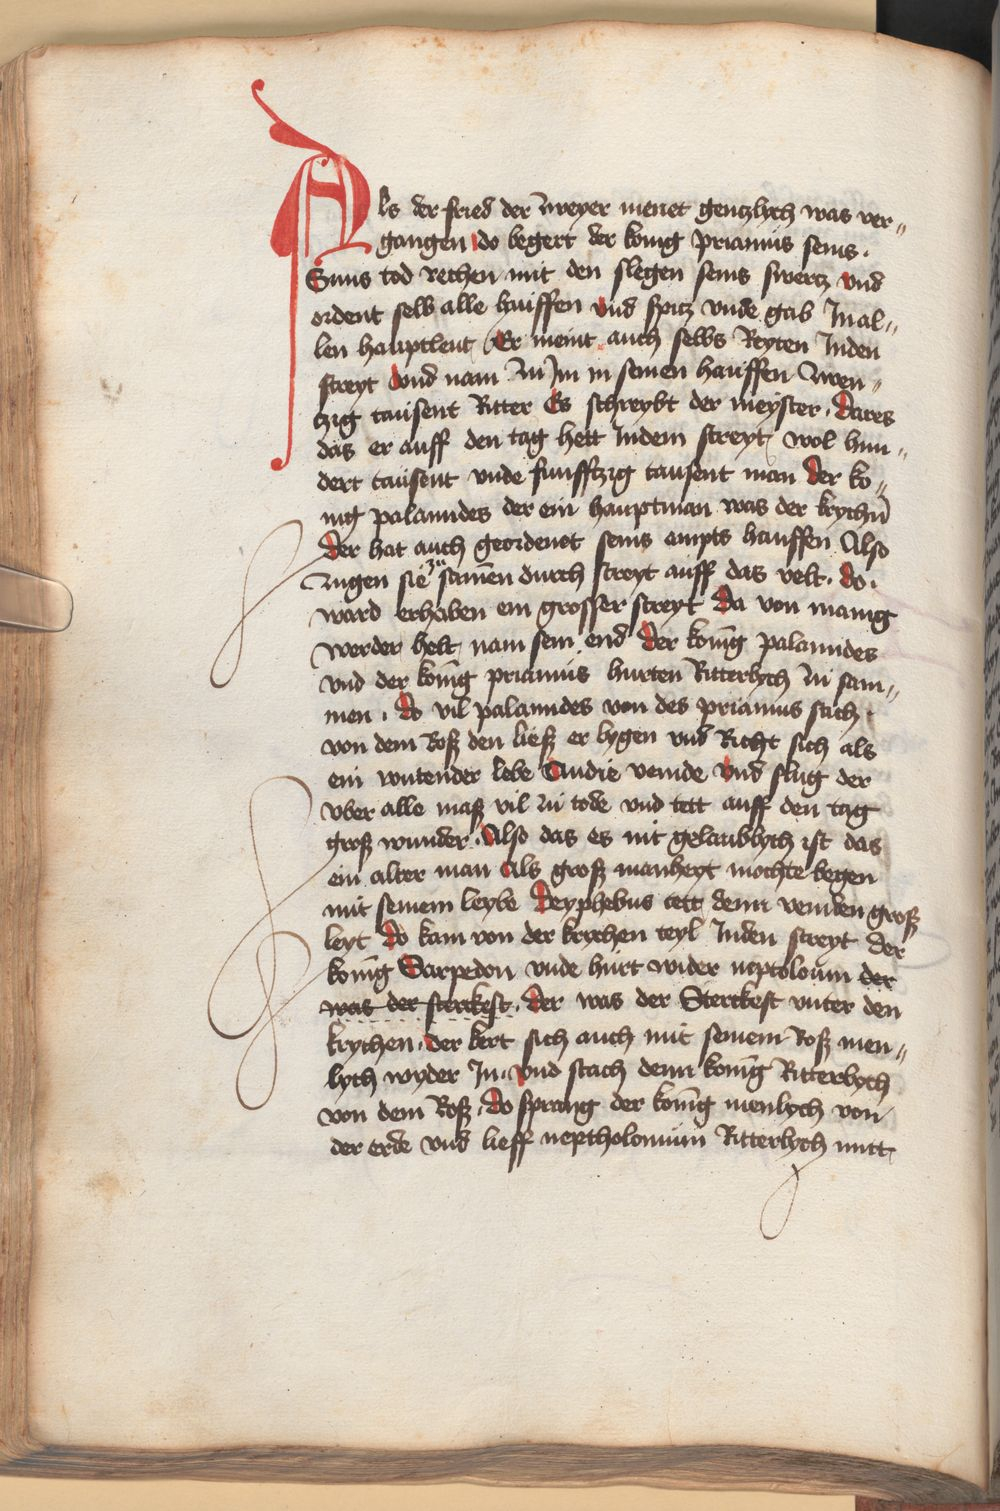 Als der frid der zweyer menet gentzlych was ver„
gangen do begert der konig priamus seins
Suns tod rechen mit den slegen seins swertz vnd
ordent selb alle hauffen vnd spitz vnde gab In al„
len hauptleut Er meint auch selbs Reyten Inden
streyt vnd nam zu Im in seinen hauffen zwen„
tzig tausent Ritter Es schreybt der meyster dares
das er auff den tag hett Indem streyt wol hun„
dert tausent vnde funfftzig tausent man der ko„
nig palamides der ein hauptman was der krychn̄
der hat auch geordenet seins ampts hauffen Also
zugen sie zu samen durch streyt auff das velt do
ward erhaben ein grosser streyt da von manig
werder helt nam sein end der konig palamides
vnd der konig priamus hurten Ritterlych zu sam„
men do vil palamides von des priamus stich
von dem Roß den ließ er lygen vnd Richt sich als
ein wutender lebe Andie veinde vnd slug der
vber alle maß vil zu tode vnd tett auff den tag
groß wunder Also das es nit gelaublych ist das
ein alter man als groß manheyt mochte begen
mit seinem leybe deyphebus tett denn veinden groß
leyt do kam von der krychen teyl Inden streyt der
konig Sarpedon vnde hurt wider neptoloum der
was der sterckest der was der Sterckest vnter den
krychen der kert sich auch mit seinem Roß men„
lych wyder In vnd stach denn konig Ritterlych
von dem Roß do sprang der konig menlych von
der erde vnd lieff neptholomum Ritterlych mitt